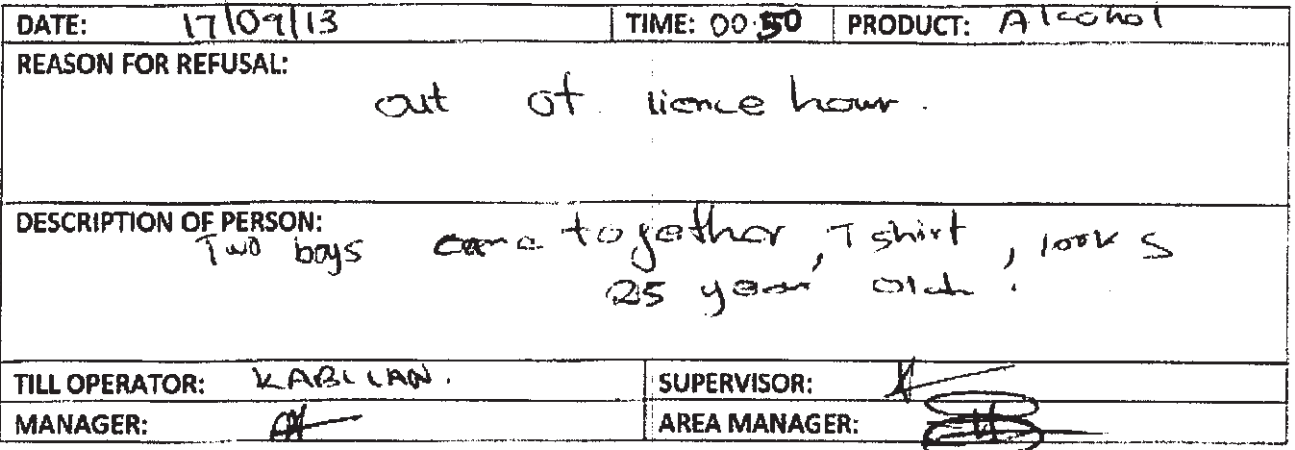 DATE: 17/09/13 TIME: 00:50 PRODUCT: Alcohol
REASON FOR REFUSAL:
out of lience hour.
DESCRIPTION OF PERSON:
Two boys came together, T shirt, looks
25 year old.
TILL OPERATOR: KABILAN. SUPERVISOR:
MANAGER: AREA MANAGER: